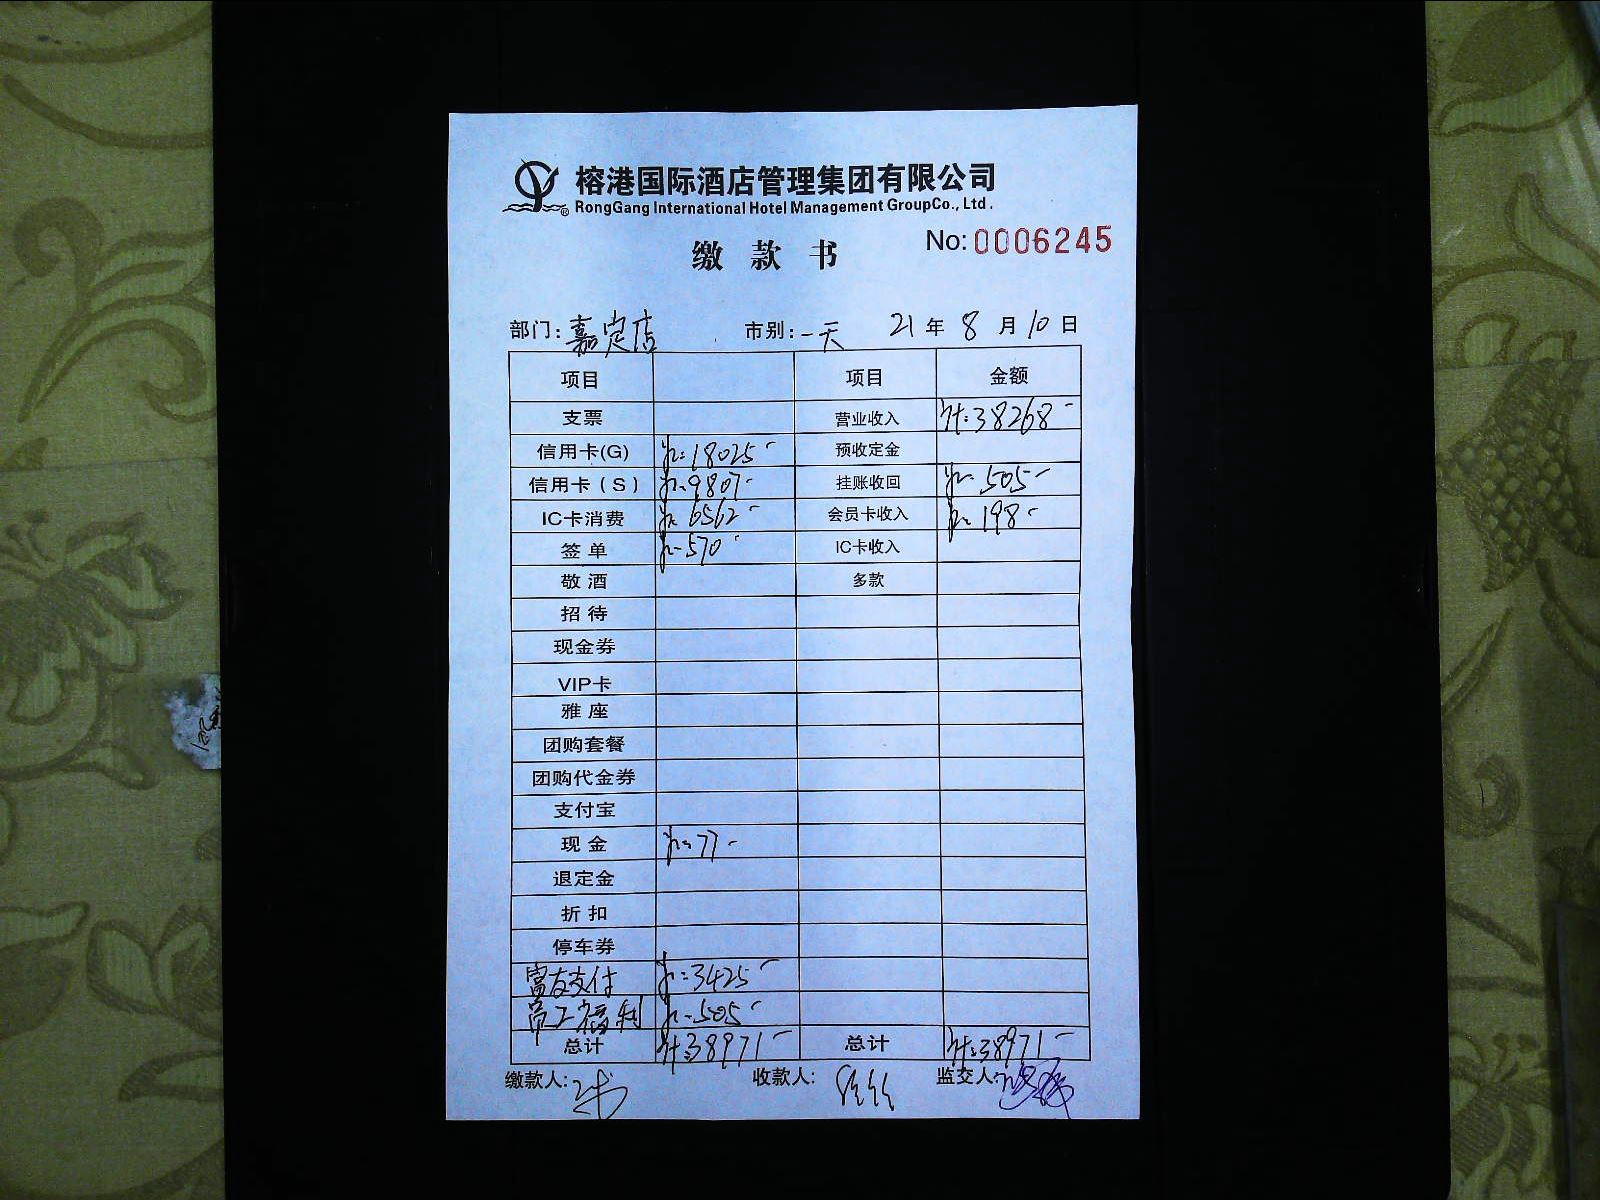 榕港国际酒店管理集团有限公司
® RongGang International Hotel Management GroupCo., Ltd.
No: 0006245
缴 款 书
部门: 嘉定店 市别: 一天 21 年 8 月 10 日
项目 项目 金额
支票 营业收入 计:38268-
信用卡(G) 18025- 预收定金
信用卡(S) 9807- 挂账收回 505-
IC卡消费 6562- 会员卡收入 198-
签 单 570- IC卡收入
敬 酒 多款
招 待
现金券
VIP卡
雅 座
团购套餐
团购代金券
支付宝
现 金 77-
退定金
折 扣
停车券
富友支付 3425-
员工福利 505-
总计 计:38971- 总计 计:38971-
缴款人: 收款人: 监交人: